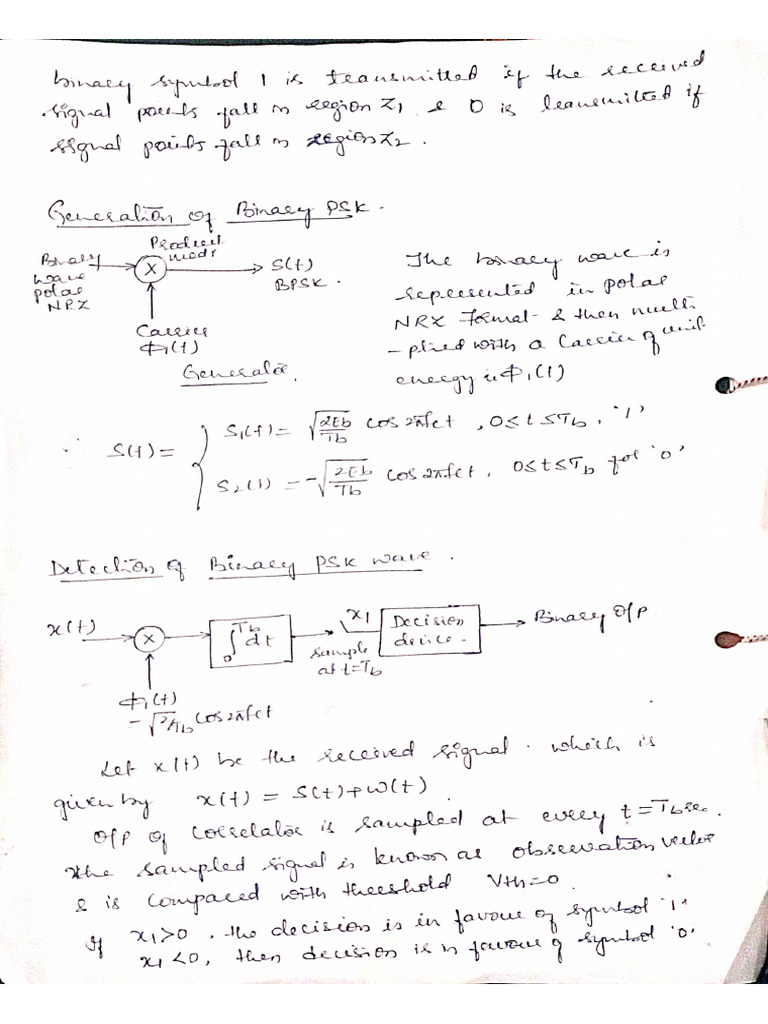 binary symbol 1 is transmitted if the received
signal points fall in region Z1 & 0 is transmitted if
signal points fall in region Z2.
Generation of Binary PSK.
Binary
wave
polar
NRZ
Product
modr
X
S(t)
BPSK.
Carrier
Φ1(t)
Generator.
The binary wave is
represented in polar
NRZ Format & then multi
-plied with a Carrier of unit
energy ie Φ1(t)
∴ S(t) = { S1(t) = √(2Eb/Tb) cos 2πfct , 0≤t≤Tb, '1'
S2(t) = -√(2Eb/Tb) cos 2πfct, 0≤t≤Tb for '0'
Detection of Binary PSK wave.
x(t)
X
∫0^Tb dt
x1
sample
at t=Tb
Decision
device.
Binary O/P
Φ1(t)
-√2/Tb cos2πfct
Let x(t) be the received signal. which is
given by x(t) = S(t)+W(t)
O/P of correlator is sampled at every t=Tb sec.
the sampled signal is known as observation vector
& is compared with threshold Vth=0.
If x1>0, the decision is in favour of symbol '1'
x1<0, then decision is in favour of symbol '0'